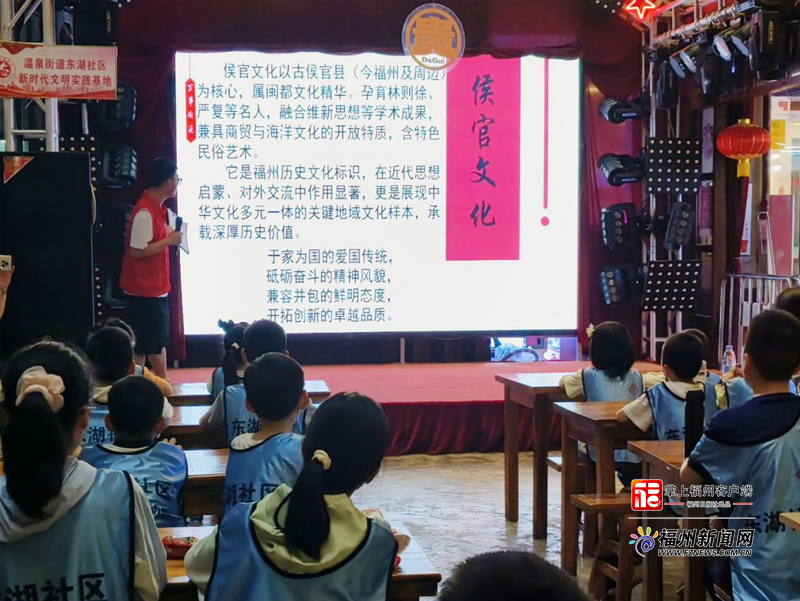 温泉街道东湖社区
新时代文明实践基地
贵
DeGui
侯官文化以古侯官县（今福州及周边）
为核心，属闽都文化精华。孕育林则徐、
严复等名人，融合维新思想等学术成果，
兼具商贸与海洋文化的开放特质，含特色
民俗艺术。
它是福州历史文化标识，在近代思想
启蒙、对外交流中作用显著，更是展现中
华文化多元一体的关键地域文化样本，承
载深厚历史价值。
于家为国的爱国传统，
砥砺奋斗的精神风貌，
兼容并包的鲜明态度，
开拓创新的卓越品质。
侯官文化
东湖社区
湖社区
东湖社
掌上福州客户端
福州日报社出品
福州新闻网
WWW.FZNEWS.COM.CN